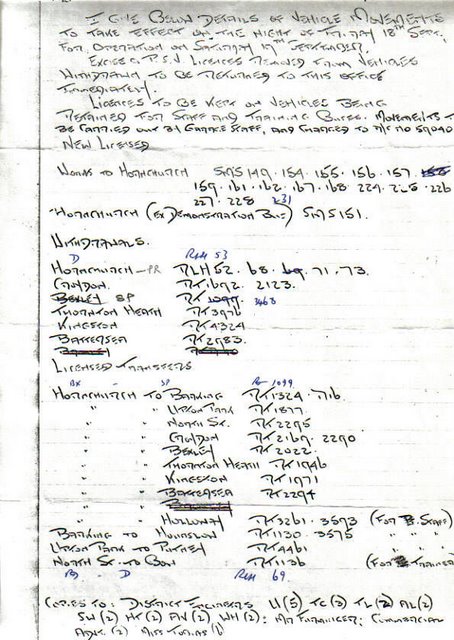 I GIVE BELOW DETAILS OF VEHICLE MOVEMENTS
TO TAKE EFFECT ON THE NIGHT OF FRIDAY 18TH SEPT.
FOR OPERATION ON SATURDAY 19TH SEPTEMBER.
EXCESS P.S.V LICENCES REMOVED FROM VEHICLES
WITHDRAWN TO BE RETURNED TO THIS OFFICE
IMMEDIATELY.
LICENCES TO BE KEPT ON VEHICLES BEING
RETAINED FOR STAFF AND TRAINING BUSES. MOVEMENTS TO
BE CARRIED OUT BY GARAGE STAFF, AND CHARGED TO
NEW LICENSED
WORKS TO HORNCHURCH SMS 149. 154. 155. 156. 157.
159. 161. 162. 167. 168. 224. 225. 226
227. 228 231
HORNCHURCH (EX DEMONSTRATION BUS) SMS 151.
WITHDRAWALS.
D RLH 53
HORNCHURCH - PR RLH 52. 68. 69. 71. 73.
CROYDON RT 1692. 2123.
BEXLEY SP RT 1099 3463
THORNTON HEATH RT 3976
KINGSTON RT 4324
BATTERSEA RT 2983.
LICENSED TRANSFERS
BX - SP RT 1099
HORNCHURCH TO BARKING RT 1324. 716.
" " UPTON PARK RT 1877
" " NORTH ST. RT 2295
" " CROYDON RT 2169. 2290
" " BEXLEY RT 2022.
" " THORNTON HEATH RT 1946
" " KINGSTON RT 1971
" " BATTERSEA RT 2294
" " HOLLOWAY RT 3261. 3593 (FOR STAFF)
BARKING TO HOUNSLOW RT 1130. 3575 " "
UPTON PARK TO PUTNEY RT 4461 " "
NORTH ST. TO BOW RT 1136 (FOR TRAINER
D RLH 69.
COPIES TO: DISTRICT ENGINEERS U(5) TC(3) TL(2) AL(2)
SW(2) HT(2) AV(2) WH(2): MR FURHINGER: COMMERCIAL
ADVT. (2) MISS